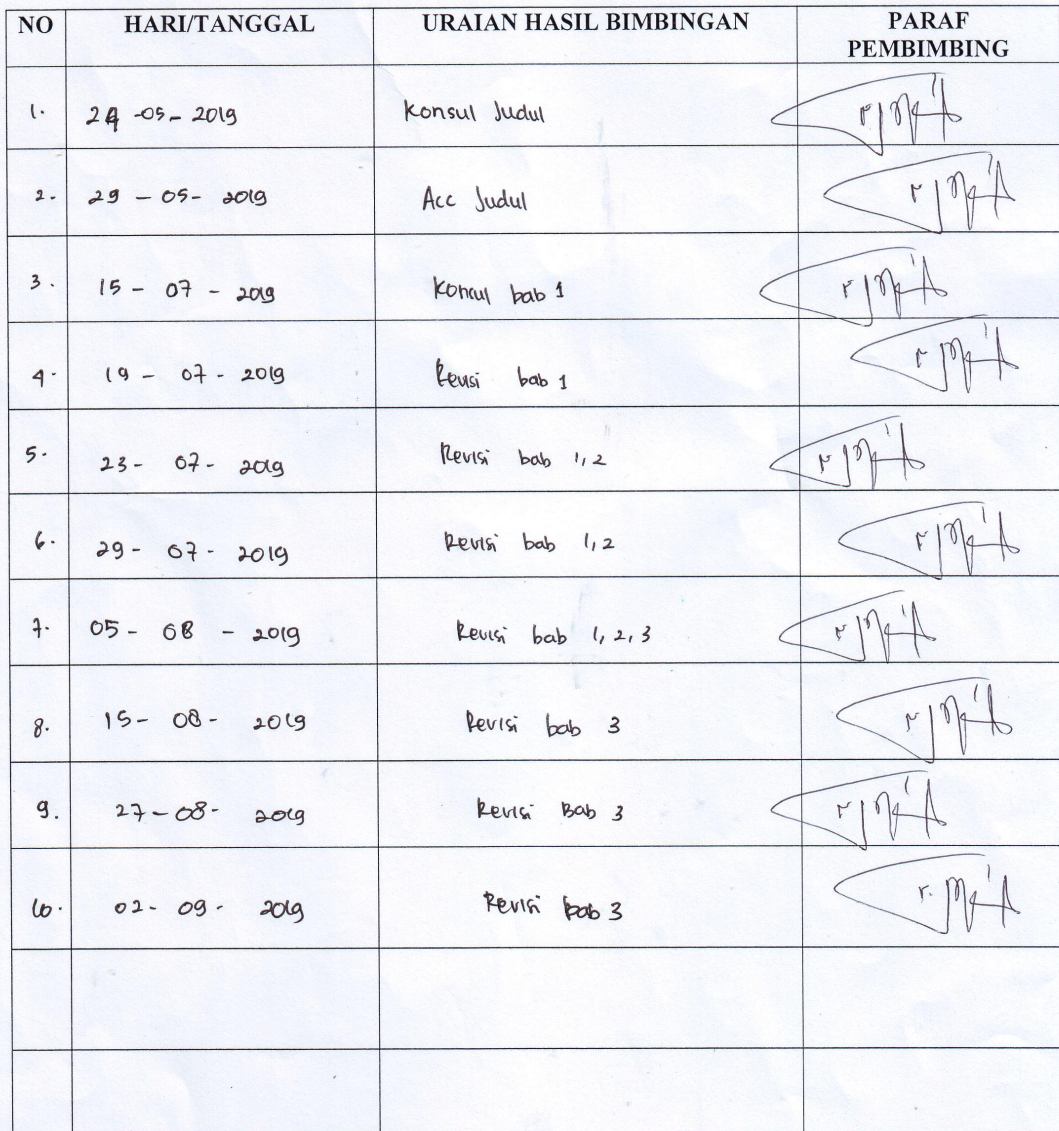 NO HARI/TANGGAL URAIAN HASIL BIMBINGAN PARAF
PEMBIMBING
1. 24 -05- 2019 Konsul Judul
2. 29 - 05- 2019 Acc Judul
3. 15 - 07 - 2019 Konsul bab 1
4. 19 - 07 - 2019 Revisi bab 1
5. 23- 07- 2019 Revisi bab 1,2
6. 29- 07- 2019 Revisi bab 1,2
7. 05- 08 - 2019 Revisi bab 1, 2, 3
8. 15- 08- 2019 Revisi bab 3
9. 27-08- 2019 Revisi Bab 3
10. 02- 09- 2019 Revisi bab 3